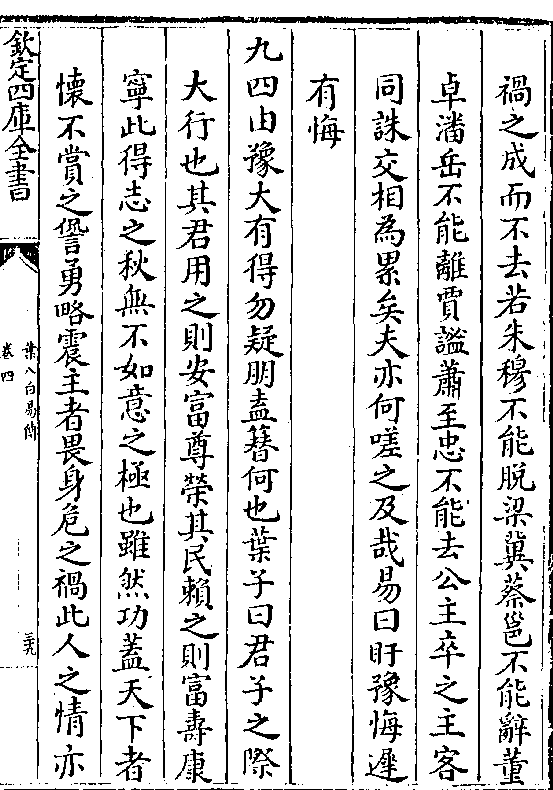 禍之成而不去若朱穆不能脱梁冀蔡邕不能辭董
卓潘岳不能離賈謐蕭至忠不能去公主卒之主客
同誅交相為累矣夫亦何嗟之及哉易曰盱豫悔遲
有悔
九四由豫大有得勿疑朋盍簪何也葉子曰君子之際
大行也其君用之則安富尊榮其民賴之則富壽康
寧此得志之秋無不如意之極也雖然功蓋天下者
懐不賞之㦣勇略震主者畏身危之禍此人之情亦
欽定四庫全書
葉八白易傳
卷四
三九